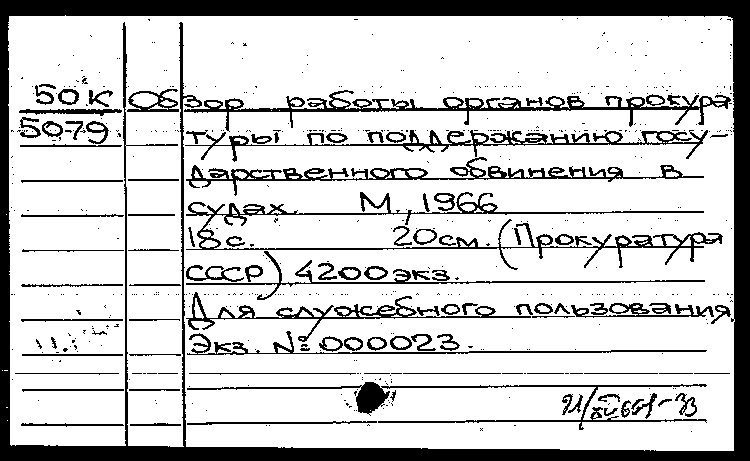 50К Обзор работы органов прокура
5079 туры по поддержанию госу-
дарственного обвинения в
судах. М., 1966
18с. 20см. (Прокуратура
СССР) 4200экз.
Для служебного пользования
Экз. № 000023.